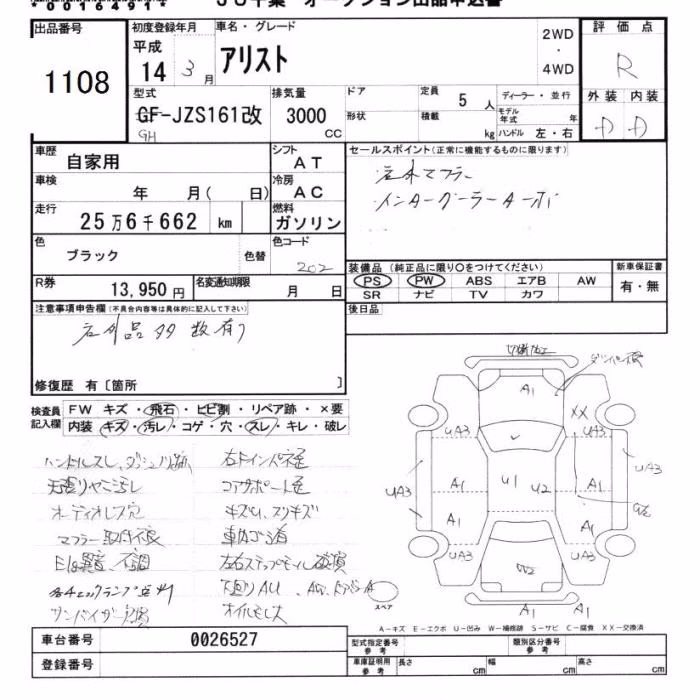 *0016491*
JU千葉 オークション出品申込書
出品番号 1108
初度登録年月 平成 14 3月
車名・グレード アリスト
2WD ・ 4WD
評価点 R
型式 GF-JZS161改
GH
排気量 3000 CC
ドア 形状
定員 5 人
積載 kg
ディーラー・並行
モデル年式 年
ハンドル 左・右
外装 内装
D D
車歴 自家用
シフト AT
セールスポイント(正常に機能するものに限ります)
社外マフラー
インタークーラーターボ
車検 年 月( 日)
冷房 AC
走行 25万6千662 km
燃料 ガソリン
色 ブラック 色替
色コード 202
装備品 (純正品に限り○をつけてください)
新車保証書
PS PW ABS エアB AW
有・無
SR ナビ TV カワ
R券 13,950円
名変通知期限 月 日
後日品
注意事項申告欄(不具合内容等は具体的に記入して下さい)
社外品多数有り
修復歴 有〔箇所 〕
検査員記入欄
FW キズ・飛石・ヒビ割・リペア跡・×要
内装 キズ・汚レ・コゲ・穴・スレ・キレ・破レ
ハンドルスレ、ダッシュ
天張りヤニ汚レ
オーディオレス穴
マフラー取付不良
Eg異音、不調
各チェックランプ点灯
サンバイザー
右ドアインパネ
キズ凹、スリキズ
左右ステップモール破損
下廻りAU
オイルモレ大
A1
XX
UA3 UA3
UA3
UA3
A1 U1 U2 A1
A1 A1
UA3 UA3
W2
A1 A1
スペア
A-キズ E-エクボ U-凹み W-補修跡 S-サビ C-腐食 XX-交換済
車台番号 0026527
型式指定番号 参考
類別区分番号 参考
登録番号
車庫証明用 参考
長さ cm
幅 cm
高さ cm